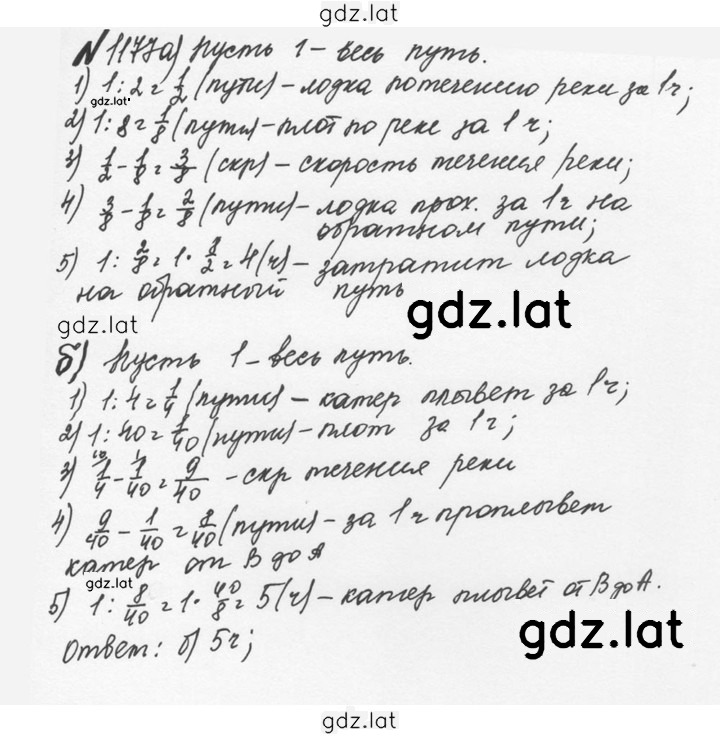 gdz.lat
N 1177а) Пусть 1 - весь путь.
1) 1 : 2 = 1/2 (пути) - лодка по течению реки за 1ч;
gdz.lat
2) 1 : 8 = 1/8 (пути) - плот по реке за 1 ч;
3) 1/2 - 1/8 = 3/8 (скр) - скорость течения реки;
4) 3/8 - 1/8 = 2/8 (пути) - лодка прох. за 1ч на
обратном пути;
5) 1 : 2/8 = 1 · 8/2 = 4 (ч) - затратит лодка
на обратный путь
gdz.lat
gdz.lat
б) Пусть 1 - весь путь.
1) 1 : 4 = 1/4 (пути) - катер плывет за 1ч;
2) 1 : 40 = 1/40 (пути) - плот за 1ч;
3) 1/4 - 1/40 = 9/40 - скр течения реки
4) 9/40 - 1/40 = 8/40 (пути) - за 1ч проплывет
катер от В до А
gdz.lat
5) 1 : 8/40 = 1 · 40/8 = 5 (ч) - катер плывет от В до А.
Ответ: б) 5ч;
gdz.lat
gdz.lat